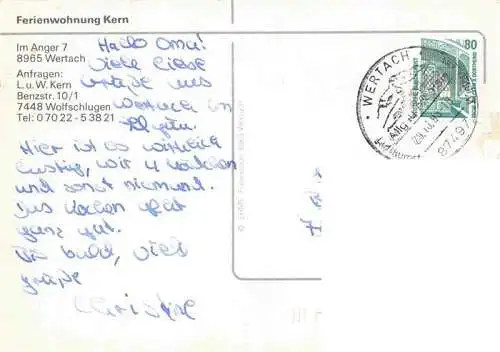 Ferienwohnung Kern
Im Anger 7
8965 Wertach
Anfragen:
L. u. W. Kern
Benzstr. 10/1
7448 Wolfschlugen
Tel: 0 70 22 - 5 38 21
Hallo Oma!
Viele liebe
Grüße aus
Wertach im
Allgäu.
Hier ist es wirklich
lustig, wir 4 Mädchen
und sonst niemand.
Das Kochen geht
ganz gut.
Bis bald, viele
Grüße
Christine
80
WERTACH
87497